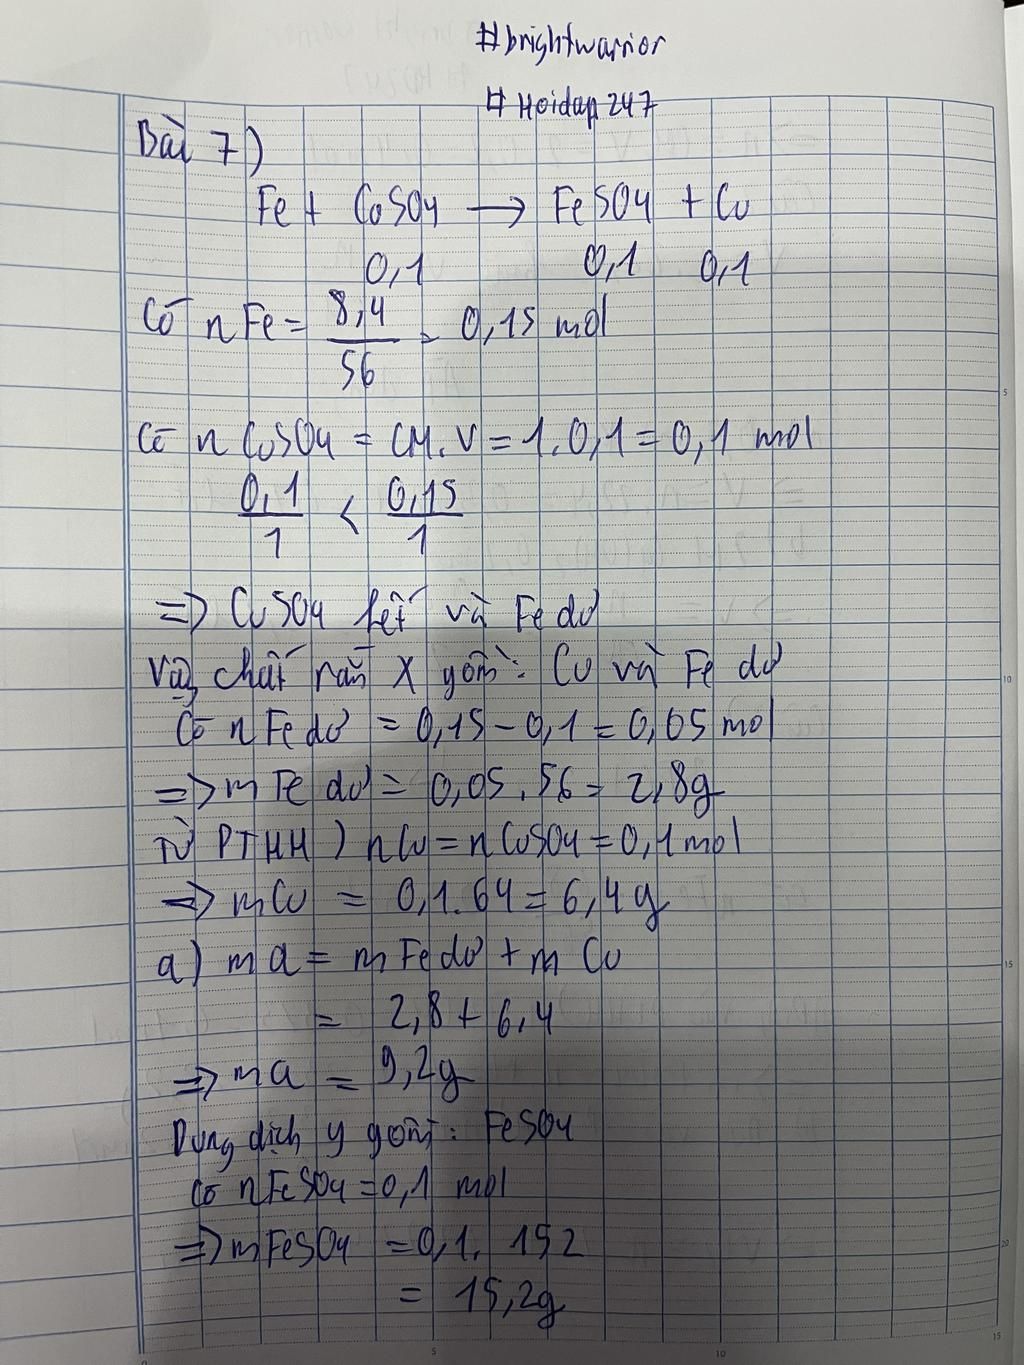 #brightwarrior
# Hoidap247
Bài 7)
Fe + CuSO4 → FeSO4 + Cu
0,1 0,1 0,1
Có nFe = 8,4/56 = 0,15 mol
Có nCuSO4 = CM.V = 1.0,1 = 0,1 mol
0,1/1 < 0,15/1
=> CuSO4 hết và Fe dư
Vậy chất rắn X gồm: Cu và Fe dư
Có nFe dư = 0,15 - 0,1 = 0,05 mol
=> mFe dư = 0,05 . 56 = 2,8g
Từ PTHH) nCu = nCuSO4 = 0,1 mol
=> mCu = 0,1.64 = 6,4g
a) ma = mFe dư + mCu
= 2,8 + 6,4
=> ma = 9,2g
Dung dịch y gồm: FeSO4
Có nFeSO4 = 0,1 mol
=> mFeSO4 = 0,1. 152
= 15,2g